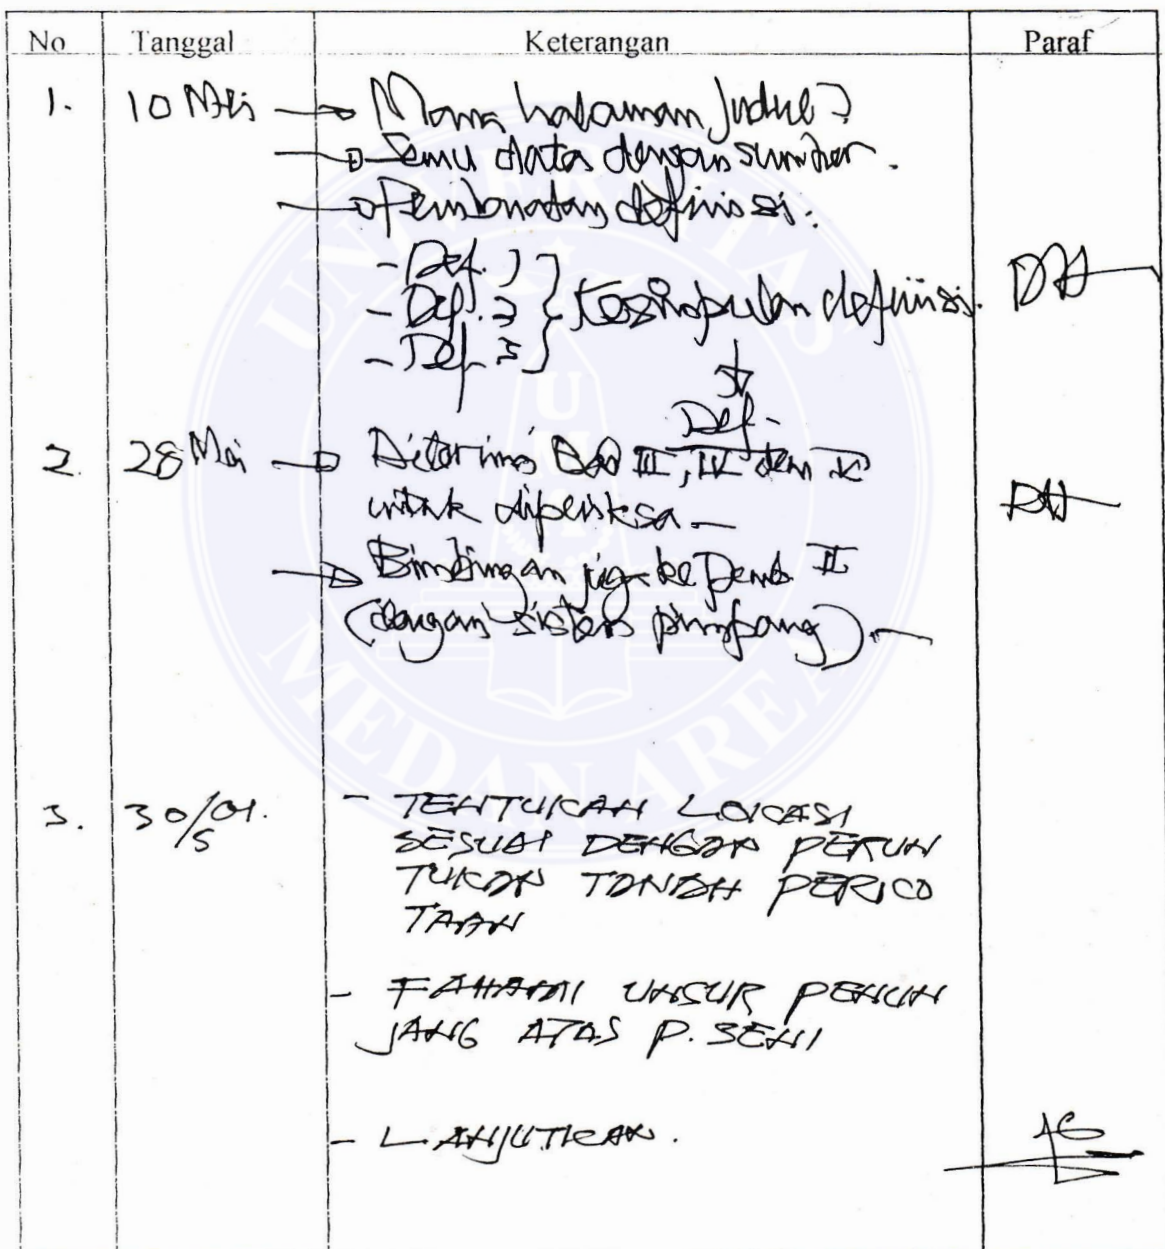 No Tanggal Keterangan Paraf
1. 10 Mei → Mana halaman judul?
→ Semu data dengan sumber.
→ Pembuatan definisi:
- Def. 1
- Def. 2 } Kesimpulan definisi.
- Def. 3
↓
Def.
2. 28 Mei → Diterima Bab III, IV dan V
untuk diperiksa.
→ Bimbingan juga ke Pemb II
(dengan sistem pimpong).
3. 30/5 01. - TENTUKAN LOKASI
SESUAI DENGAN PERUN
TUKAN TANAH PERKO
TAAN
- FAHAMI UNSUR PENUN
JANG ATAS P. SENI
- LANJUTKAN.
UNIVERSITAS
UMA
MEDAN AREA